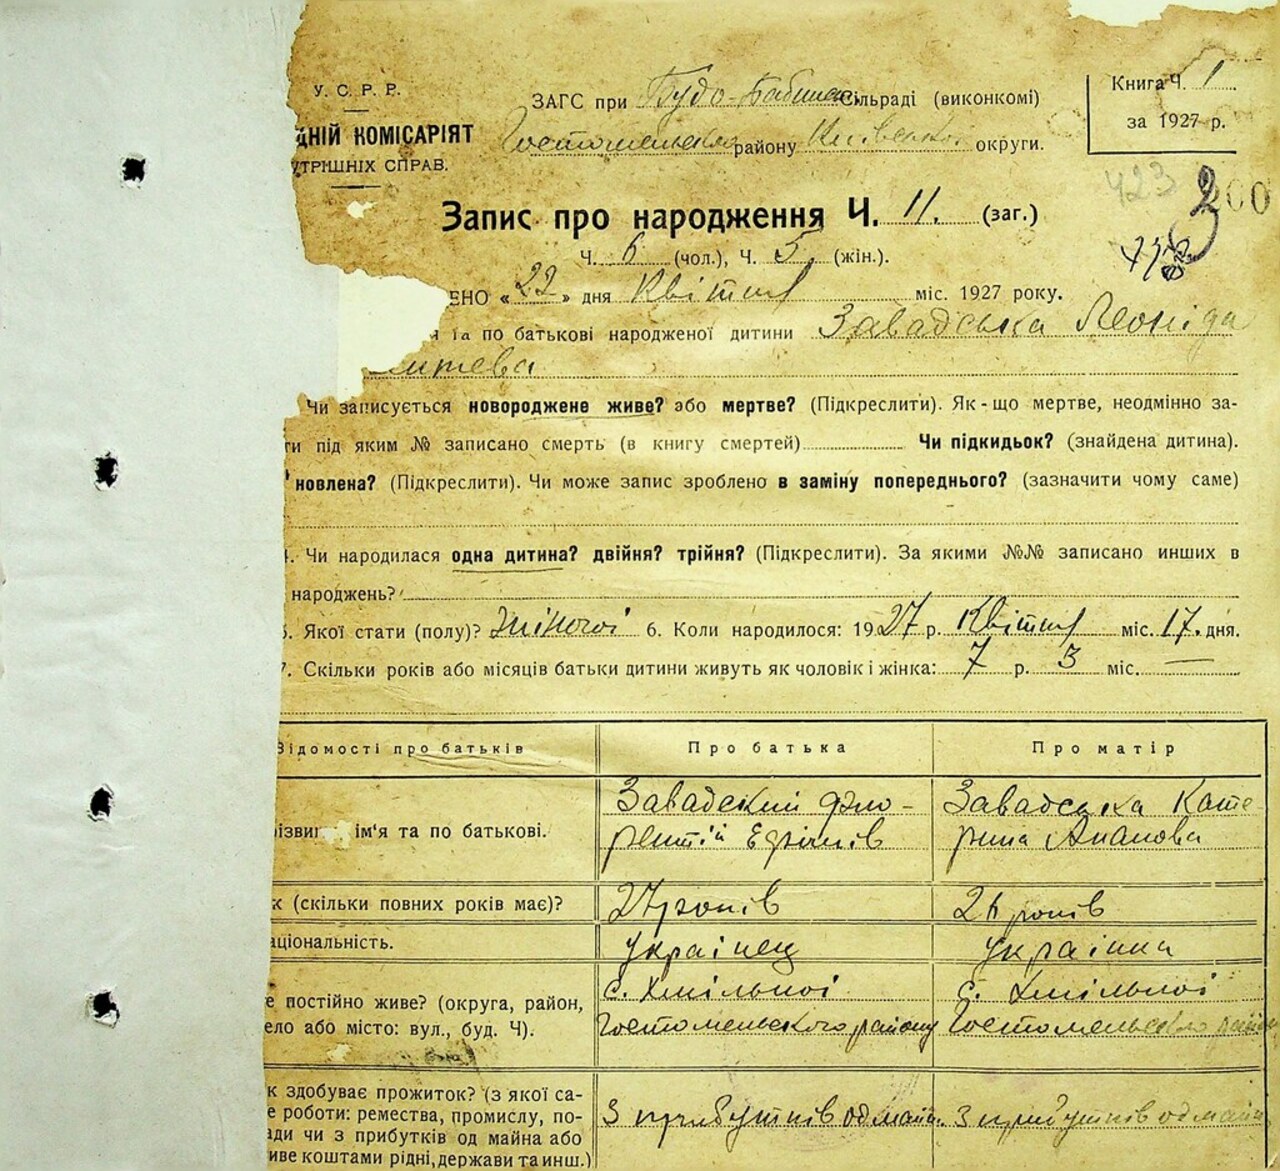 У. С. Р. Р.
ДНІЙ КОМІСАРІЯТ
УТРІШНІХ СПРАВ.
ЗАГС при Будо-Бабинец. сільраді (виконкомі)
Гостомельсько району Київської округи.
Книга Ч. 1
за 1927 р.
423 200
Запис про народження Ч. 11. (заг.)
Ч. 6 (чол.), Ч. 5, (жін.).
ЕНО «22» дня Квітня міс. 1927 року.
я та по батькові народженої дитини Завадська Леоніда
Чи записується новороджене живе? або мертве? (Підкреслити). Як-що мертве, неодмінно за-
ти під яким № записано смерть (в книгу смертей) Чи підкидьок? (знайдена дитина).
новлена? (Підкреслити). Чи може запис зроблено в заміну попереднього? (зазначити чому саме)
4. Чи народилася одна дитина? двійня? трійня? (Підкреслити). За якими №№ записано инших в
народжень?
5. Якої стати (полу)? жіночої 6. Коли народилося: 1927 р. Квітня міс. 17. дня.
7. Скільки років або місяців батьки дитини живуть як чоловік і жінка: 7 р. 3 міс. —
Відомості про батьків Про батька Про матір
різвищ ім'я та по батькові. Завадский Фло- Завадська Кате-
рентій рина
к (скільки повних років має)? 27 років 26 років
аціональність. українец українка
е постійно живе? (округа, район, с. Хмільної с. Хмільної
ело або місто: вул., буд. Ч). Гостомельского району Гостомельсько
к здобуває прожиток? (з якої са-
е роботи: ремества, промислу, по- З прибутків од майн. З прибутків од майн
ади чи з прибутків од майна або
иве коштами рідні, держави та инш.)